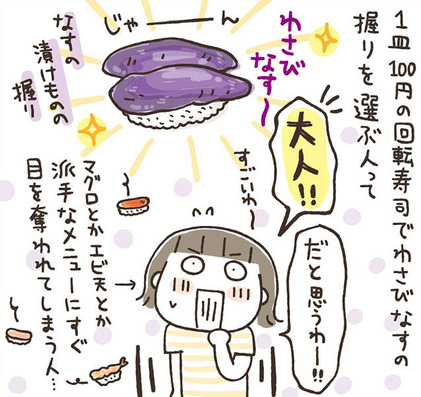 1皿100円の回転寿司でわさびなすの
握りを選ぶ人って
大人!!
だと思うわー!!
じゃーーん
わさび
なす〜
なすの
漬けものの
握り
すごいわ〜
マグロとかエビ天とか
派手なメニューにすぐ
目を奪われてしまう人…